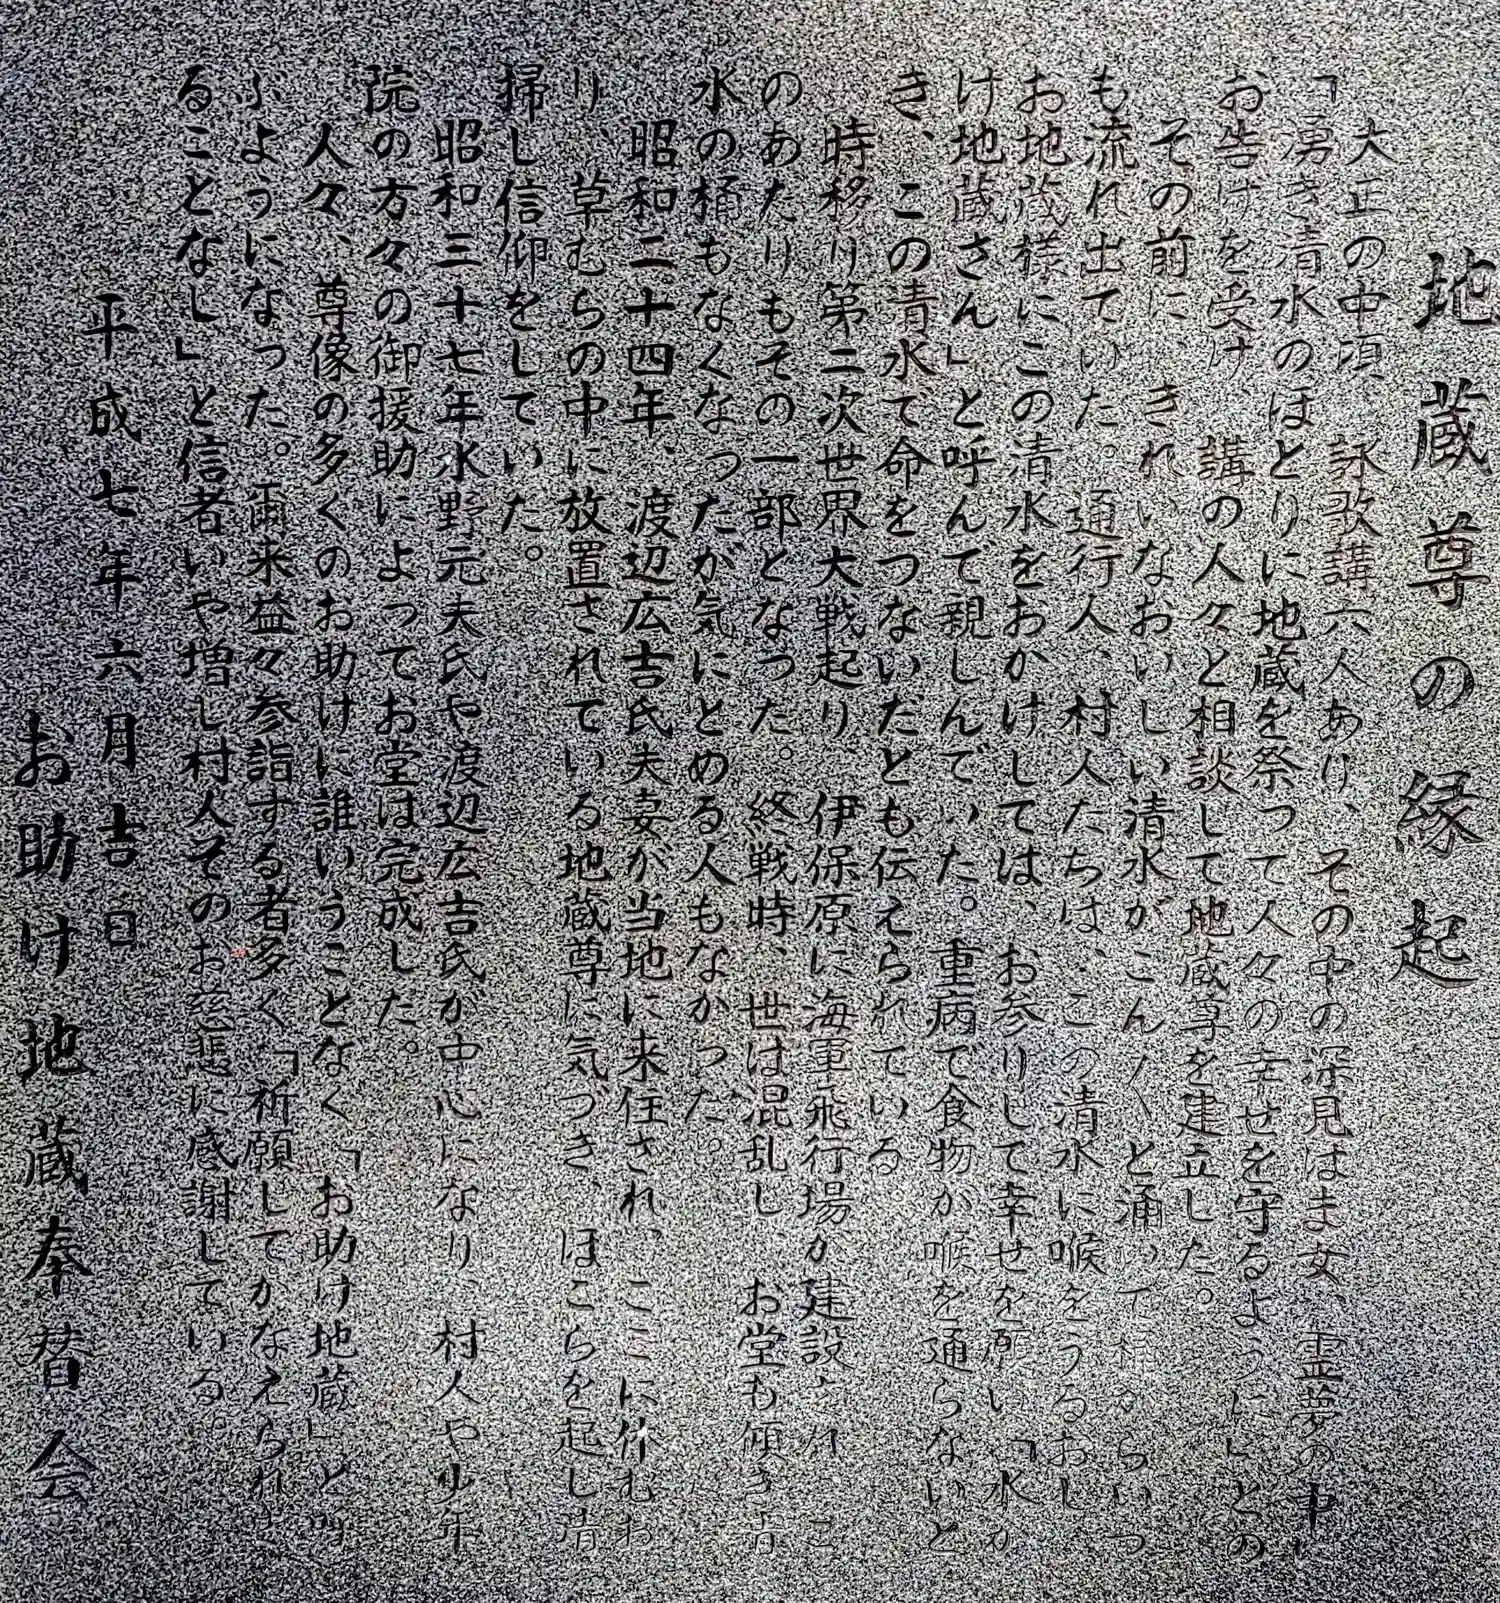 地蔵尊の縁起
大正の中頃、詠歌講六人あり、その中の深見はま女、霊夢の中に
「湧き清水のほとりに地蔵を祭って人々の幸せを守るように」との
お告けを受け、講の人々と相談して地蔵尊を建立した。
その前に、きれいなおいしい清水がこん〱と涌いて桶からいつ
も流れ出ていた。通行人、村人たちは、この清水に喉をうるおし
お地蔵様にこの清水をおかけしては、お参りして幸せを願い「水か
け地蔵さん」と呼んで親しんでいた。重病で食物が喉を通らないと
き、この清水で命をつないだとも伝えられている
時移り第二次世界大戦起り、伊保原に海軍飛行場が建設されこ
のあたりもその一部となった。終戦時、世は混乱し、お堂も傾き清
水の桶もなくなったが気にとめる人もなかった。
昭和二十四年、渡辺広吉氏夫妻が当地に来住され、ここに休むお
り、草むらの中に放置されている地蔵尊に気づき、ほこらを起し清
掃し信仰をしていた。
昭和三十七年水野元夫氏や渡辺広吉氏が中心になり、村人や少年
院の方々の御援助によってお堂は完成した。
人々、尊像の多くのお助けに誰いうことなく「お助け地蔵」と呼
ぶようになった。爾来益々参詣する者多く「祈願してかなえられ
ることなし」と信者いや増し村人そのお慈悲に感謝している。
平成七年六月吉日
お助け地蔵奉賛会